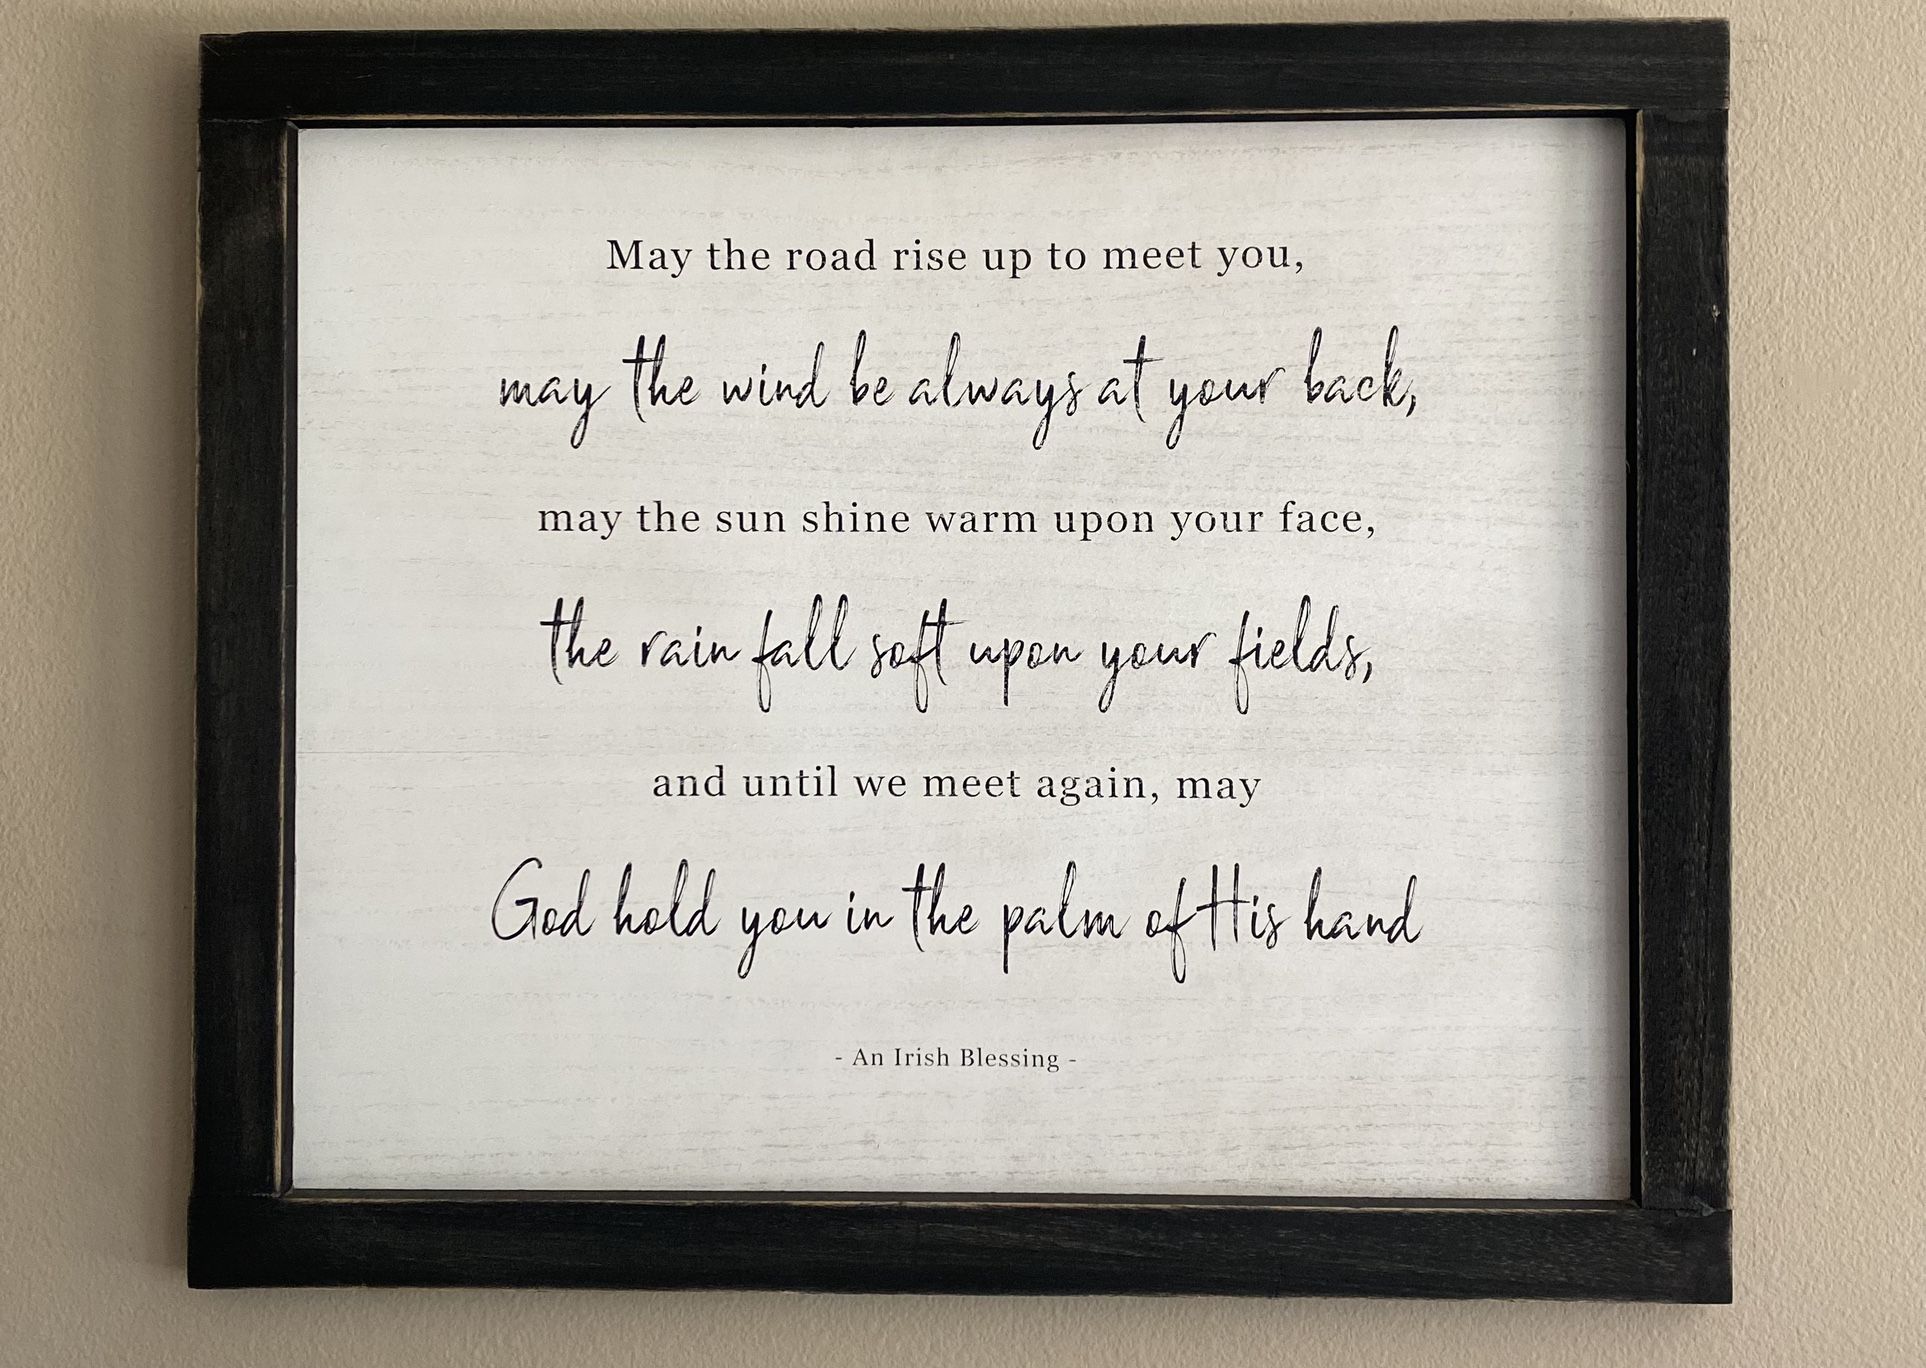 May the road rise up to meet you,
may the wind be always at your back,
may the sun shine warm upon your face,
the rain fall soft upon your fields,
and until we meet again, may
God hold you in the palm of His hand
- An Irish Blessing -